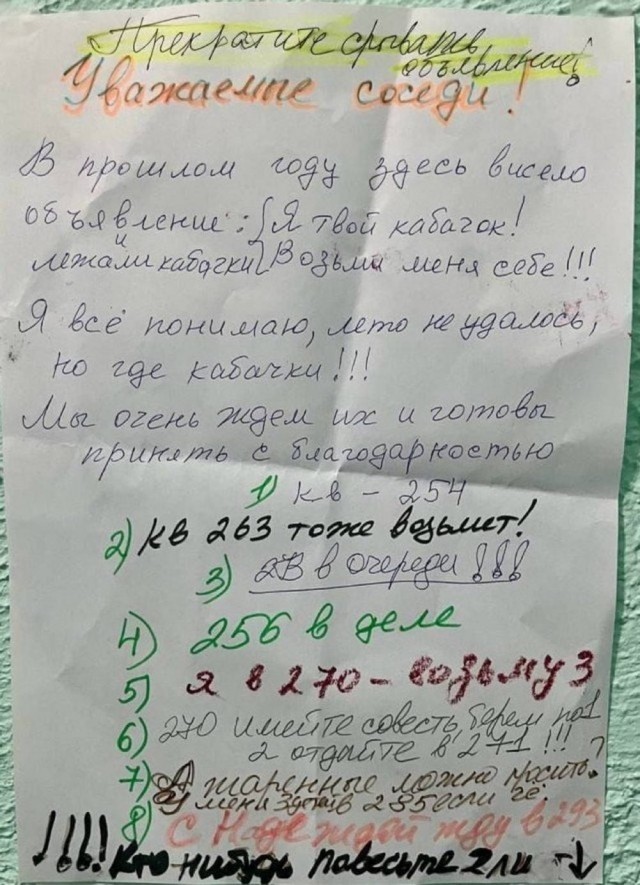 Прекратите срывать
объявление!
Уважаемые соседи!
В прошлом году здесь висело
объявление: Я твой кабачок!
и
лежали кабачки Возьми меня себе!!!
Я всё понимаю, лето не удалось,
но где кабачки!!!
Мы очень ждем их и готовы
принять с благодарностью
1) кв - 254
2) кв 263 тоже возьмет!
3) 2В в очереди!!!
4) 256 в деле
5) я в 270 - возьму 3
6) 270 имейте совесть, берем по 1
2 отдайте в 271!!!
7) А жаренные можно просить?
У меня в 285 если чё.
8) С Надеждой жду в 293
!!!! Кто нибудь повесьте 2 ли